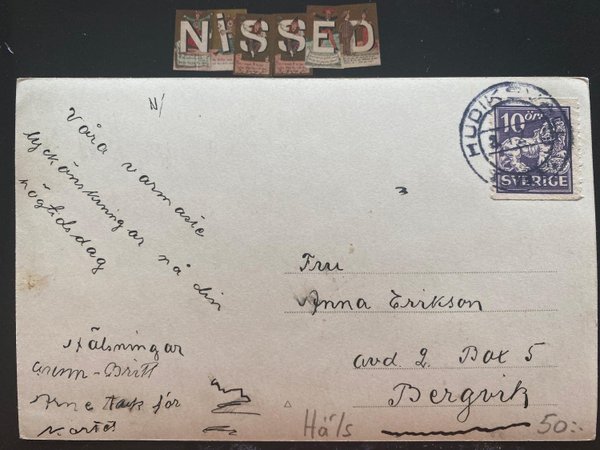 NiSSED
HUDIKSVALL
10 ÖRE
SVERIGE
Våra varmaste
lyckönskningar på din
högtidsdag
Hälsningar
Gunn-Britt
Arne Tack för
kortet
Fru
Anna Erikson
avd 2 Box 5
Bergvik
Häls
50:-